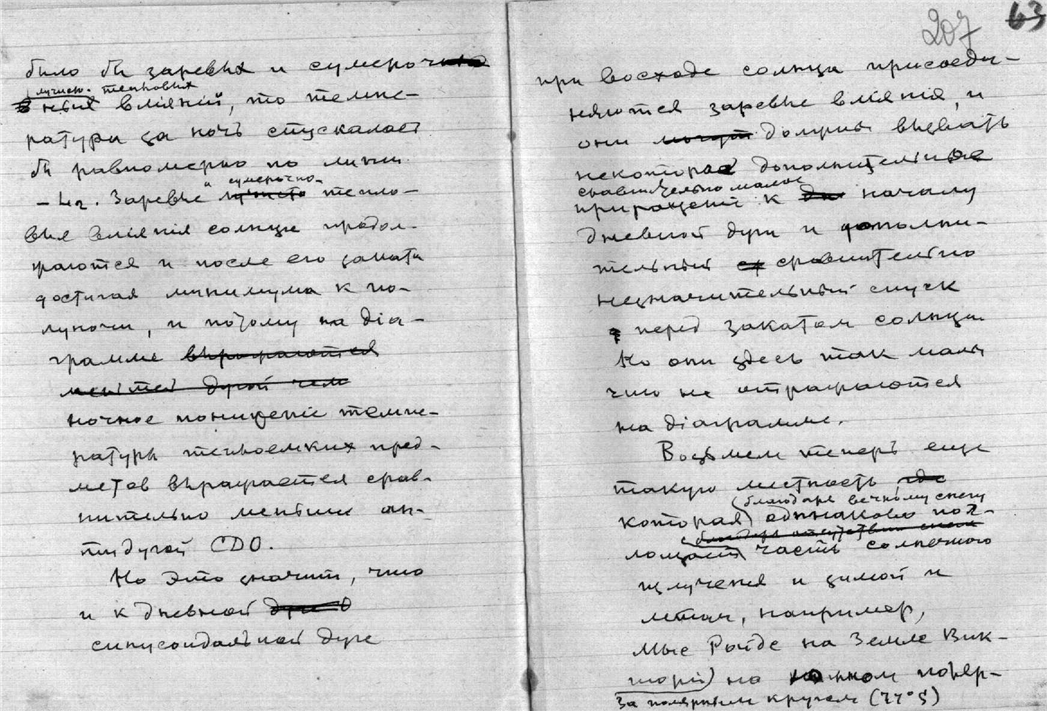 207 63
было бы заревых и сумероч
лучисто-тепловых
ных влiянiй, то темпе-
ратура за ночь спускалась
бы равномерно по линии
Заревые и сумеречно- тепло-
вые влiянiя солнца продол-
жаются и после его заката
достигая минимума к по-
луночи, и потому на дiа-
грамме выражается
дугой чем
ночное пониженiе темпе-
ратуры теплоемких пред-
метов выражается срав-
нительно меньше ан-
тидугой CDO.
Но это значит, что
и к дневной
синусоидальной дуге
при восходе солнца присоеди-
няются заревые влiянiя, и
они могут должны вызвать
некоторое дополнительное
сравнительно малое
приращенiе к началу
дневной дуги и дополни-
тельный сравнительно
незначительный спуск
перед закатом солнца.
Но они здесь так малы
что не отражаются
на дiаграмме.
Возьмем теперь еще
такую местность где
(благодаря вечному снегу
которая) одинаково пог-
лощает часть солнечного
излученiя и зимой и
летом, например,
мыс Ройдс на Земле Вик-
торiи) на южном поляр-
За полярным кругом (77°5)